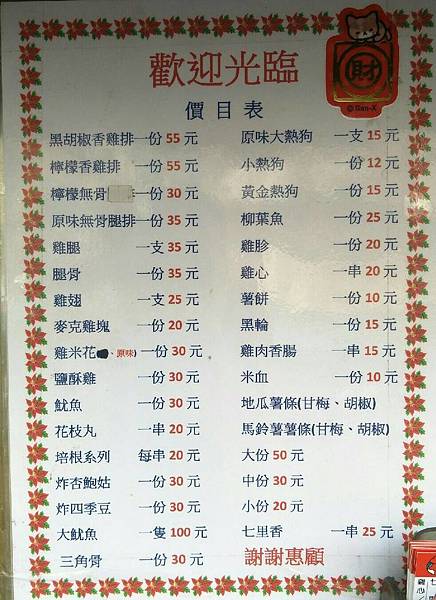 歡迎光臨
財
©San-X
價目表
黑胡椒香雞排一份 55 元
檸檬香雞排 一份 55 元
檸檬無骨 一份 30 元
原味無骨腿排一份 35 元
雞腿 一支 35 元
腿骨 一份 35 元
雞翅 一支 25 元
麥克雞塊 一份 20 元
雞米花( 、原味) 一份 30 元
鹽酥雞 一份 30 元
魷魚 一份 30 元
花枝丸 一串 20 元
培根系列 每串 20 元
炸杏鮑姑 一份 30 元
炸四季豆 一份 30 元
大魷魚 一隻 100 元
三角骨 一份 30 元
原味大熱狗 一支 15 元
小熱狗 一份 12 元
黃金熱狗 一份 15 元
柳葉魚 一份 25 元
雞胗 一份 20 元
雞心 一串 20 元
薯餅 一份 10 元
黑輪 一份 15 元
雞肉香腸 一串 15 元
米血 一份 10 元
地瓜薯條(甘梅、胡椒)
馬鈴薯薯條(甘梅、胡椒)
大份 50 元
中份 30 元
小份 20 元
七里香 一串 25 元
謝謝惠顧